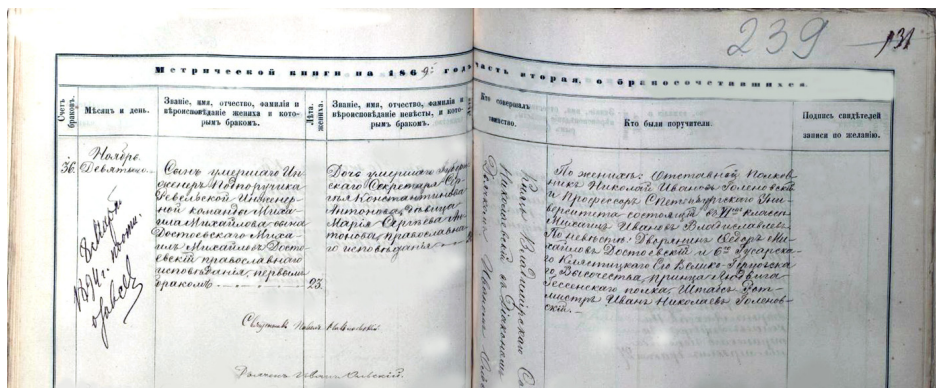 239
131
Метрической книги на 1869й годъ часть вторая, о бракосочетавшихся.
Счетъ браковъ.
Мѣсяцъ и день.
Званіе, имя, отчество, фамилія и
вѣроисповѣданіе жениха и кото-
рымъ бракомъ.
Лѣта жениха.
Званіе, имя, отчество, фамилія и
вѣроисповѣданіе невѣсты, и кото-
рымъ бракомъ.
Кто совершалъ
таинство.
Кто были поручители.
Подпись свидѣтелей
записи по желанію.
36.
Ноябрь
Девятаго
Сынъ умершаго Ин-
женеръ Подпоручика
Ревельской Инженер-
ной команды Миха-
ила Михайлова сына
Достоевскаго Миха-
илъ Михайловъ Досто-
евскій православнаго
исповѣданія, первымъ
бракомъ
23.
Дочь умершаго Губерн-
скаго Секретаря Сер-
гѣя Константинова
Антонова, дѣвица
Марія Сергѣева Ан-
тонова, православна-
го исповѣданія
Князь Владимірскаго Со
Николаевскій съ Діакономъ
По женихѣ: Отставной Полков-
никъ Николай Ивановъ Голеновскій
и Профессоръ С.Петербургскаго Уни-
верситета состоящій въ классѣ
Михаилъ Ивановъ Владиславлевъ.
По невѣстѣ: Дворянинъ Ѳедоръ Ми-
хайловъ Достоевскій и 6го Гусарска-
го Клястицкаго Его Велико-Герцогска-
го Высочества, Принца Людвига
Гессенскаго полка, Штабсъ Рот-
мистръ Иванъ Николаевъ Голенов-
скій.
Священникъ Павелъ Николаевскій.